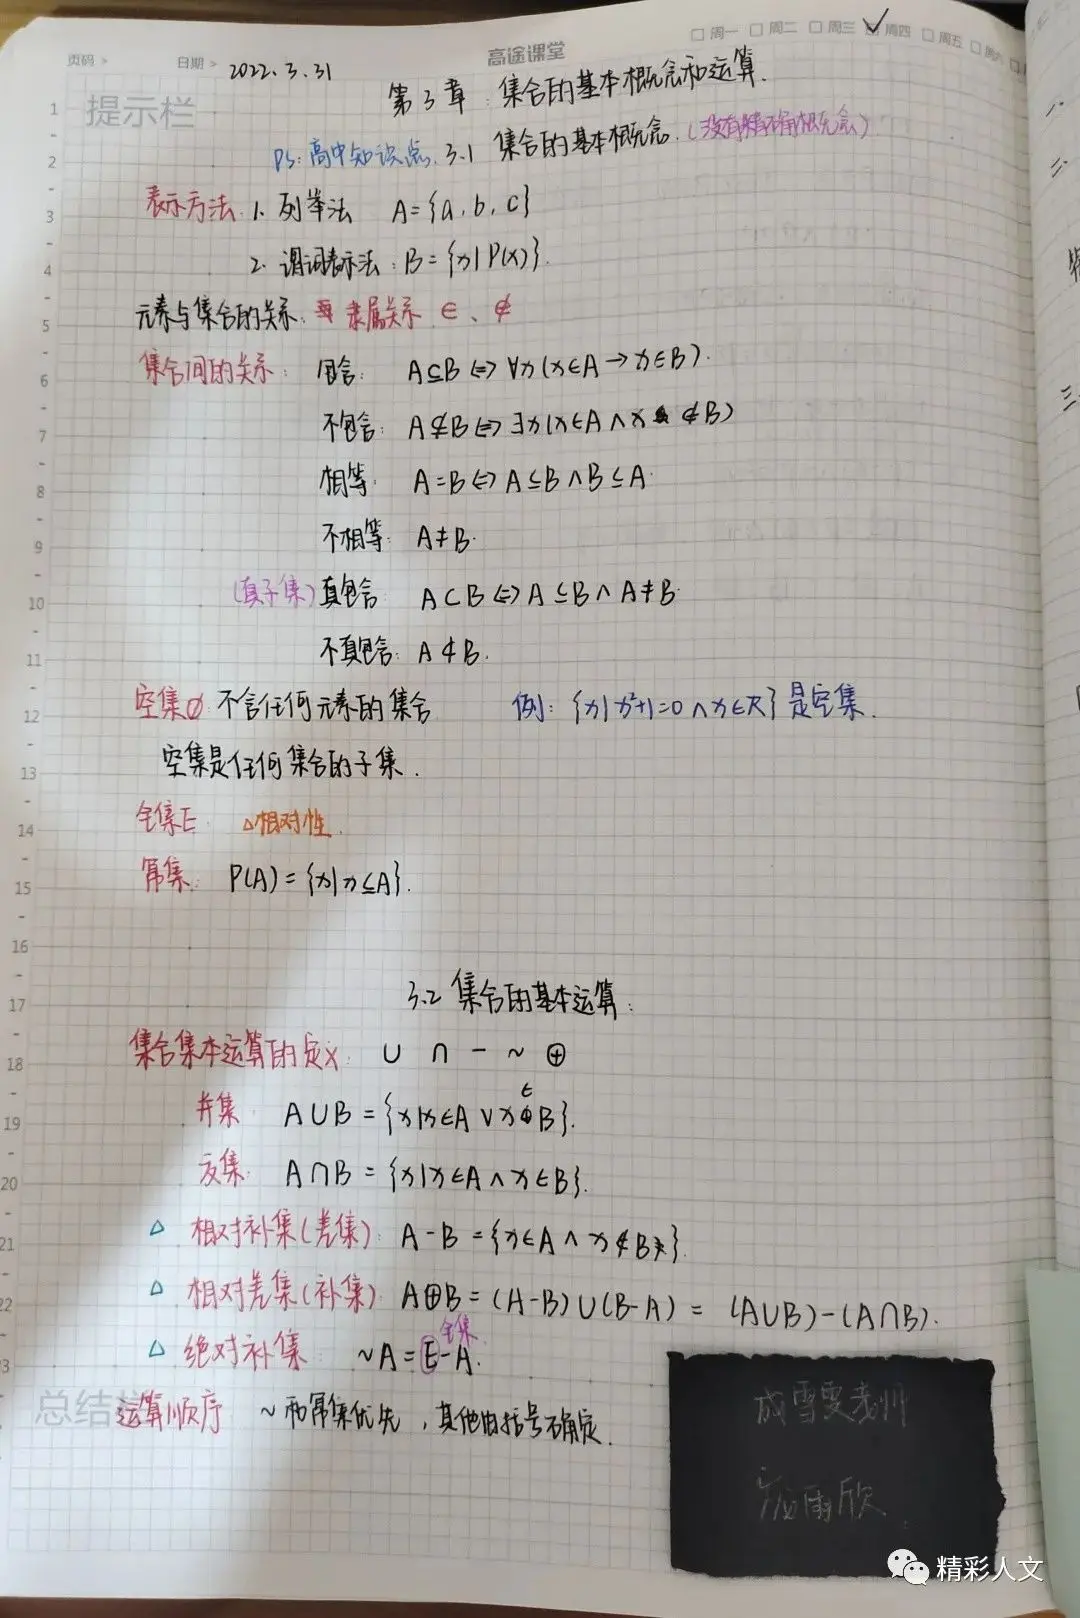 页码 >
日期 > 2022.3.31
高途课堂
周一 周二 周三 周四 周五
提示栏
第3章：集合的基本概念和运算.
PS:高中知识点. 3.1 集合的基本概念.(没有精确概念)
表示方法 1. 列举法 A={a,b,c}
2. 谓词表示法：B={x|P(x)}.
元素与集合的关系：隶属关系 ∈、∉
集合间的关系：包含：A⊆B⇔∀x(x∈A→x∈B).
不包含：A⊈B⇔∃x(x∈A∧x∉B)
相等：A=B⇔A⊆B∧B⊆A.
不相等：A≠B.
(真子集)真包含：A⊂B⇔A⊆B∧A≠B.
不真包含：A⊄B.
空集∅ 不含任何元素的集合 例：{x|x²+1=0∧x∈R}是空集.
空集是任何集合的子集.
全集E △相对性.
幂集：P(A)={x|x⊆A}.
3.2 集合的基本运算：
集合集本运算的定义：∪ ∩ - ~ ⊕
并集：A∪B={x|x∈A∨x∈B}.
交集：A∩B={x|x∈A∧x∈B}.
△ 相对补集(差集)：A-B={x∈A∧x∉B}.
△ 相对差集(补集)：A⊕B=(A-B)∪(B-A)=(A∪B)-(A∩B).
全集
△ 绝对补集：~A=E-A.
总结
运算顺序 ~和幂集优先，其他由括号确定.
1
2
3
4
5
6
7
8
9
10
11
12
13
14
15
16
17
18
19
20
21
22
23
成雪雯老师
雨欣
精彩人文